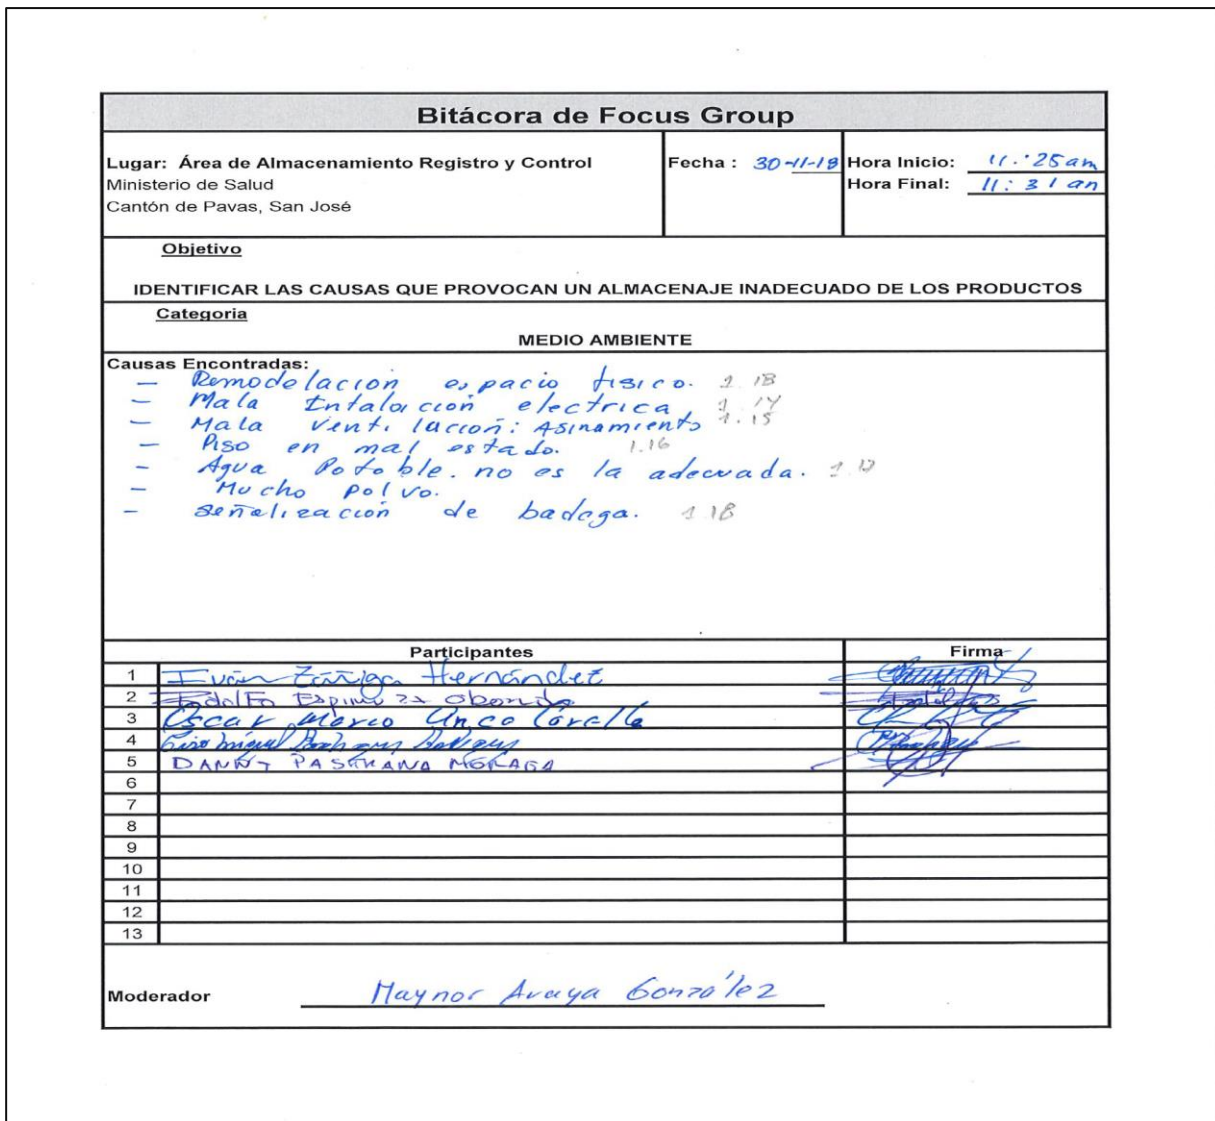 Bitácora de Focus Group
Lugar: Área de Almacenamiento Registro y Control
Ministerio de Salud
Cantón de Pavas, San José
Fecha : 30-11-18
Hora Inicio: 11:25am
Hora Final: 11:31 am
Objetivo
IDENTIFICAR LAS CAUSAS QUE PROVOCAN UN ALMACENAJE INADECUADO DE LOS PRODUCTOS
Categoria
MEDIO AMBIENTE
Causas Encontradas:
– Remodelación espacio fisico.
– Mala Intalación electrica 1.14
– Mala Ventilación: Asinamiento 1.15
– Piso en mal estado. 1.16
– Agua Potable. no es la adecuada.
– Mucho polvo.
– señalización de badega. 1.18
Participantes Firma
1 Iván Zúñiga Hernández
2 Espinoza Obando
3 Oscar
4 Miguel
5 DANNY PASTRANA MORAGA
6
7
8
9
10
11
12
13
Moderador Maynor Araya González